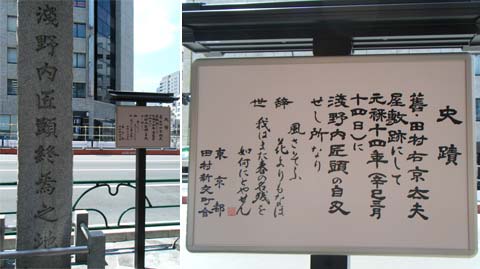 淺野内匠頭終焉之地
史蹟
舊・田村右京太夫
屋敷跡にして
元禄十四年(辛巳)三月
十四日に
淺野内匠頭の自刃
せし所なり
辞世
風さそふ
花よりもなほ
我はまた春の名残を
如何にとやせん
東京都
田村新交町会